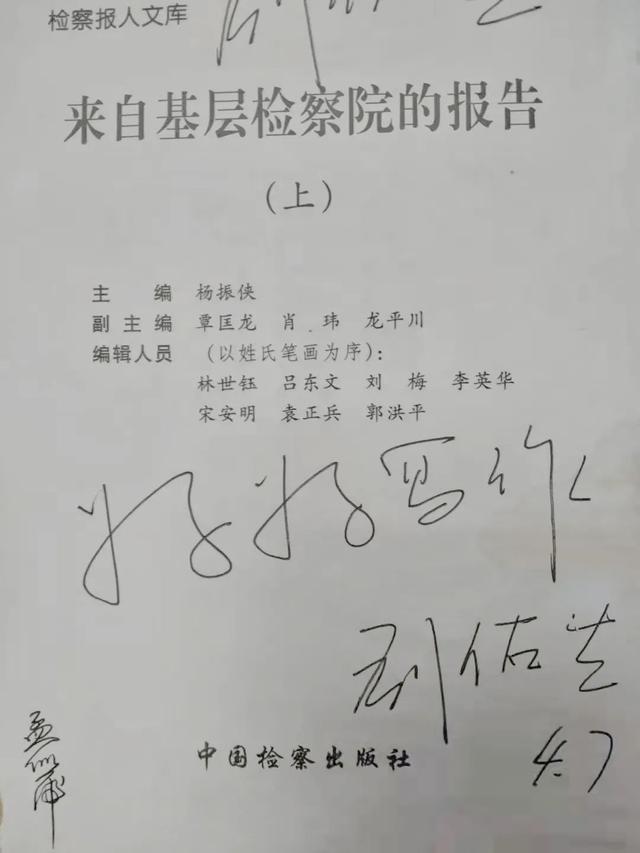 检察报人文库
来自基层检察院的报告
（上）
主　编　杨振侠
副主编　覃匡龙　肖　玮　龙平川
编辑人员　（以姓氏笔画为序）：
林世钰　吕东文　刘　梅　李英华
宋安明　袁正兵　郭洪平
好好写作
刘佑
4.7
中国检察出版社